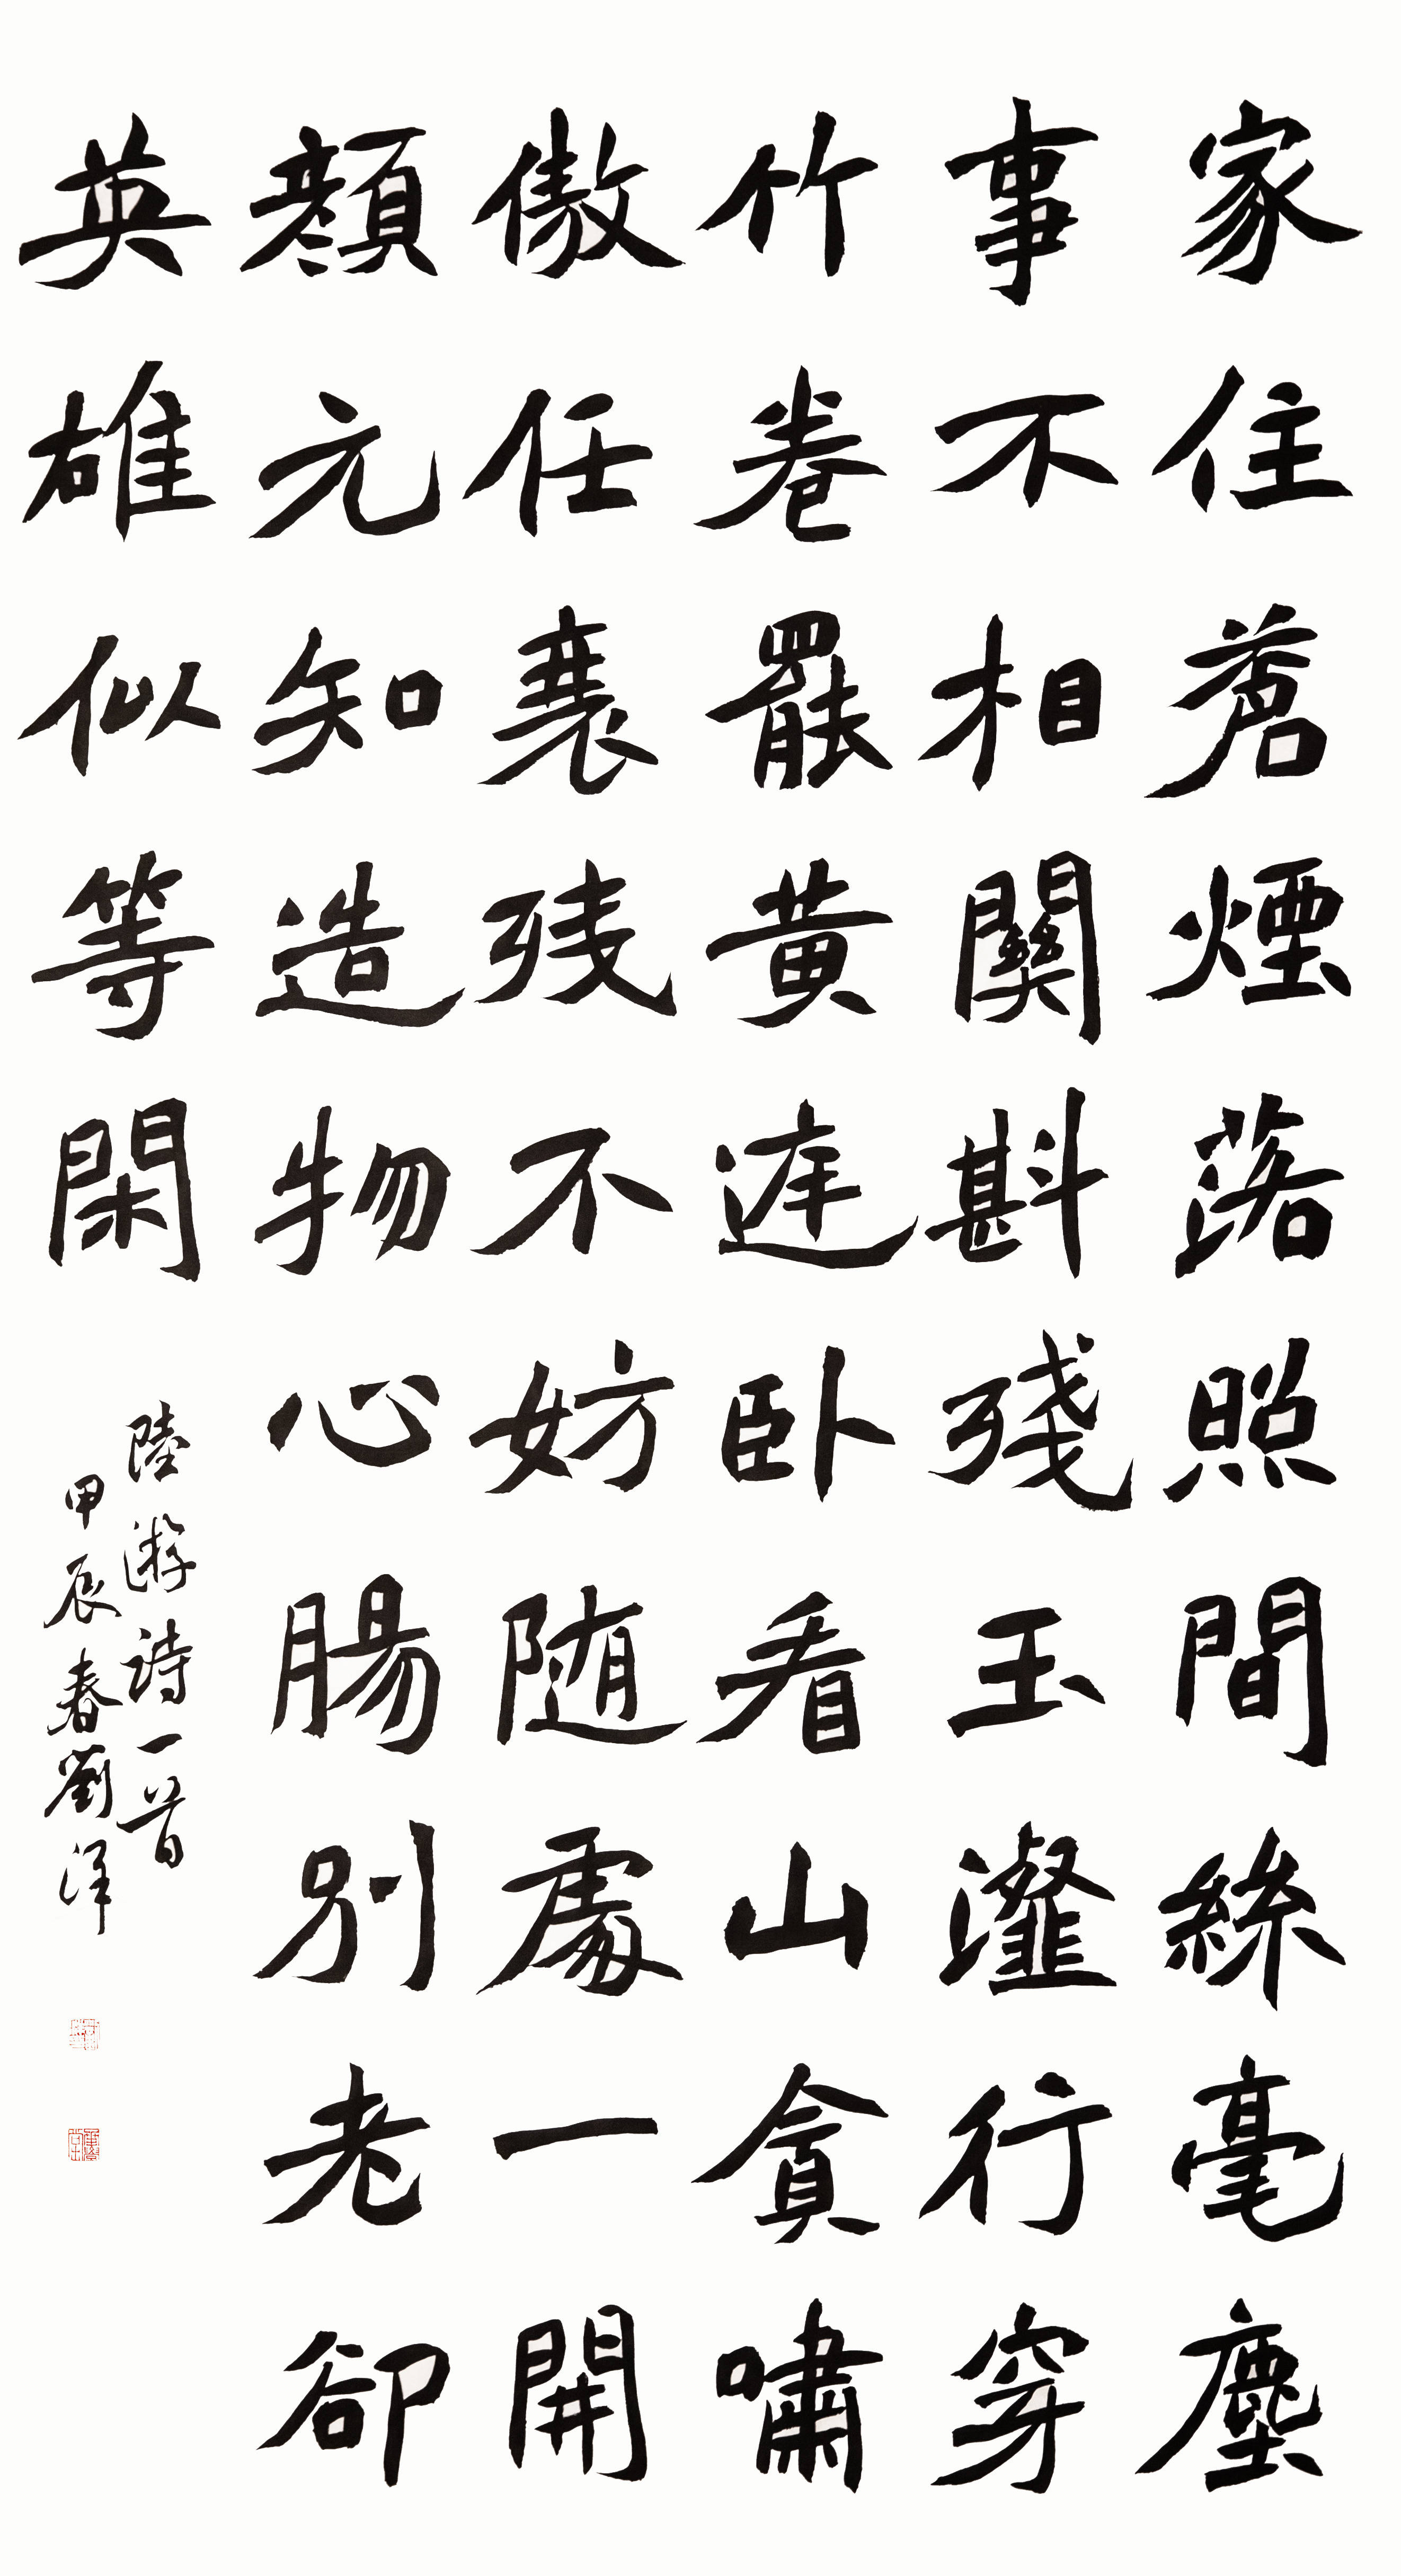 家住蒼煙落照間絲毫塵
事不相關斟殘玉瀣行穿
竹卷罷黃庭卧看山貪嘯
傲任衰残不妨随處一開
顏元知造物心腸別老卻
英雄似等閑
陸游詩一首
甲辰春劉洋